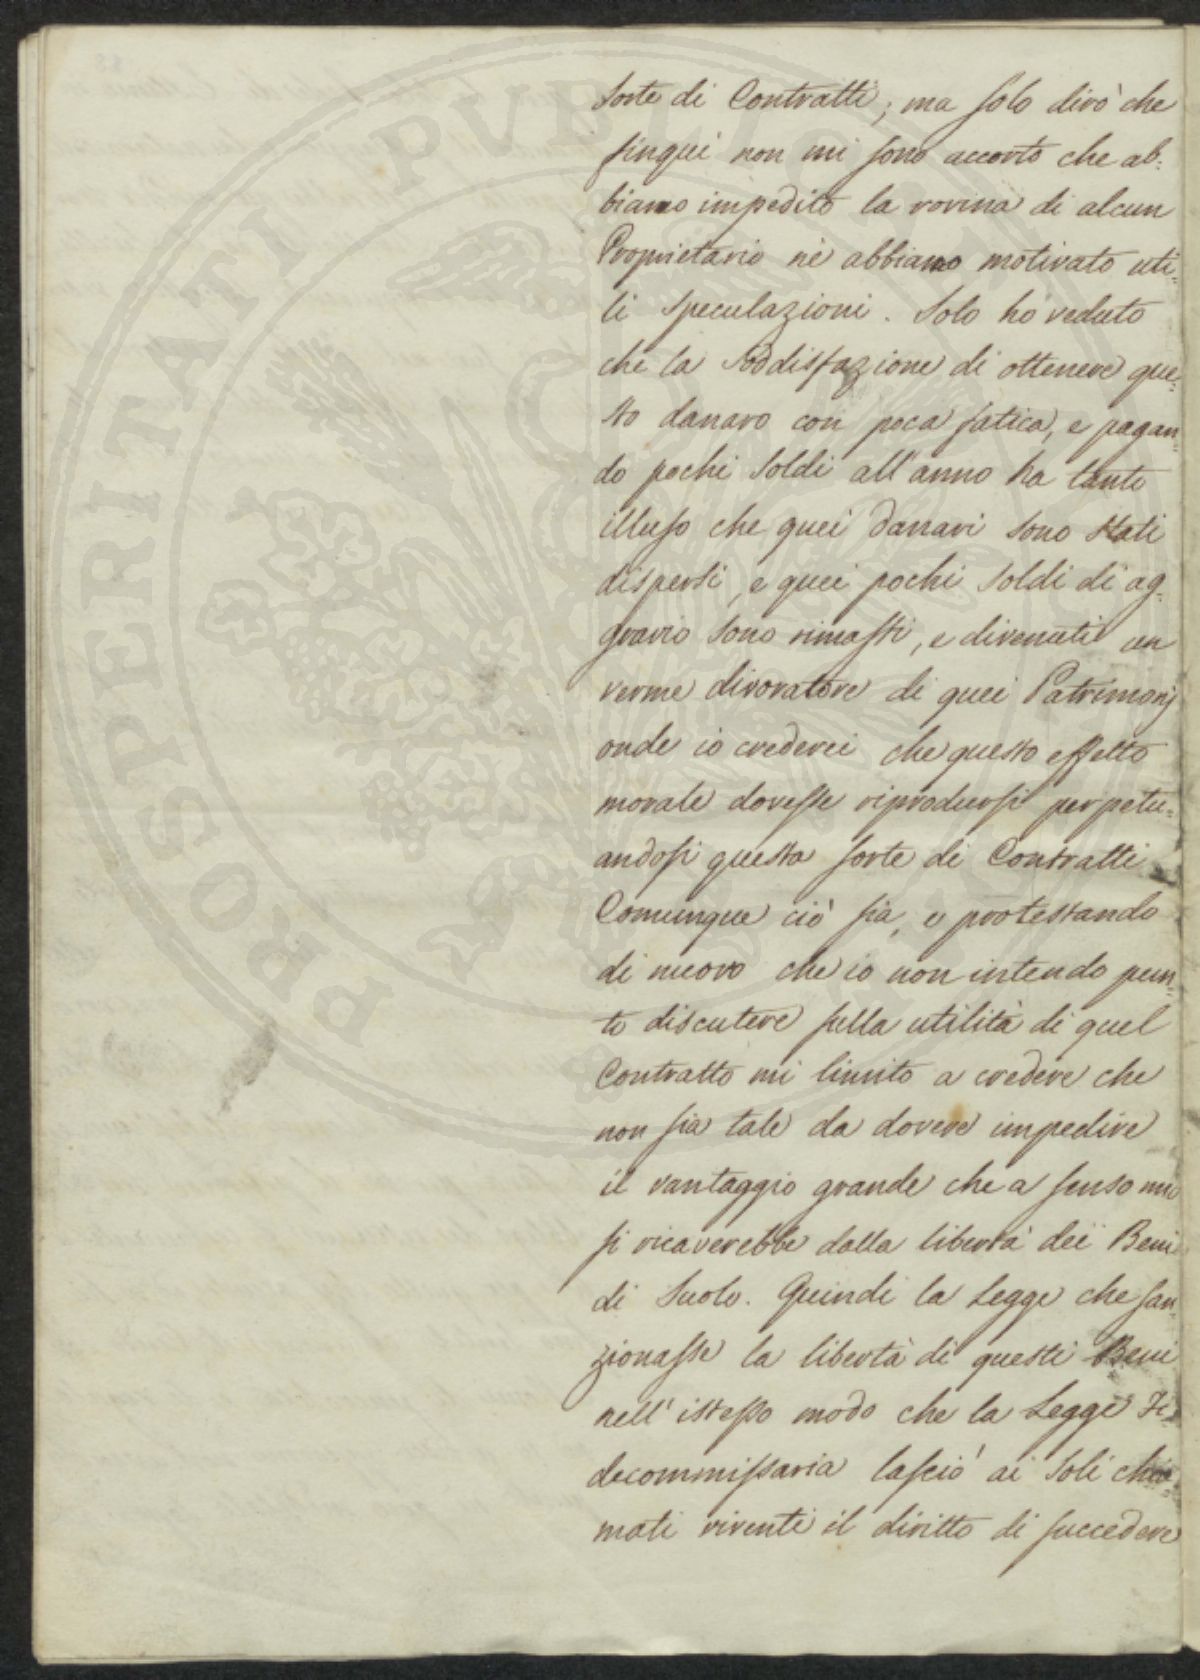 sorte di Contratti; ma solo dirò che
finqui non mi sono accorto che ab=
biamo impedito la rovina di alcun
Proprietario nè abbiamo motivato uti=
li speculazioni. Solo ho veduto
che la soddisfazione di ottenere que=
sto danaro con poca fatica, e pagan=
do pochi soldi all'anno ha tanto
illuso che quei danari sono stati
dispersi, e quei pochi soldi di ag=
gravio sono rimasti, e divenuti un
verme divoratore di quei Patrimonj
onde io crederei che questo effetto
morale dovesse riprodursi perpetu=
andosi questa sorte di Contratti
Comunque ciò sia, e protestando
di nuovo che io non intendo pun=
to discutere sulla utilità di quel
Contratto mi limito a credere che
non sia tale da dovere impedire
il vantaggio grande che a senso mio
si ricaverebbe dalla libertà dei Beni
di Suolo. Quindi la Legge che san=
zionasse la libertà di questi Beni
nell'istesso modo che la Legge Fi=
decommissaria lasciò ai soli chia=
mati viventi il diritto di succedere
PROSPERITATI PVBLICAE